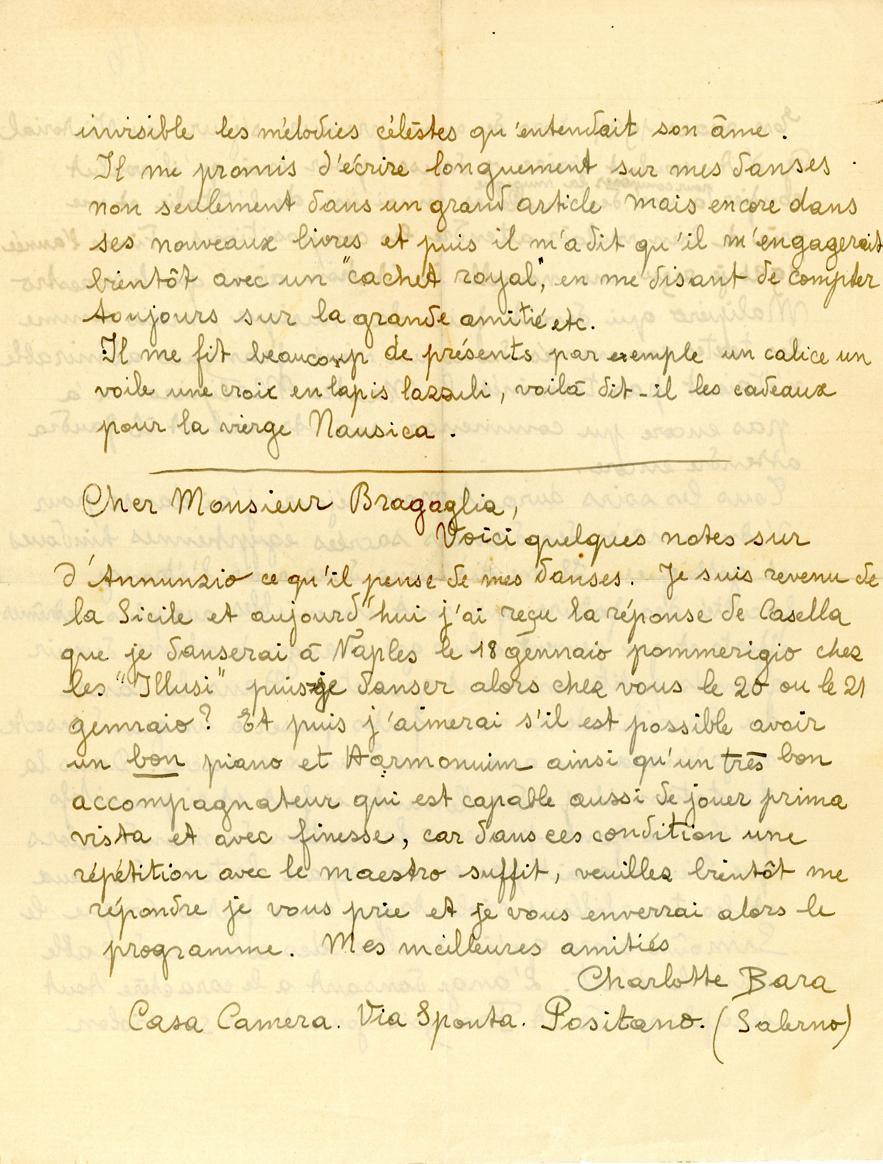 invisible les mélodies célèstes qu'entendait son âme .
Il me promis d'écrire longuement sur mes danses .
non seulement dans un grand article mais encore dans
ses nouveaux livres et puis il m'a dit qu'il m'engagerait
bientôt avec un "cachet royal", en me disant de compter
toujours sur la grande amitié etc.
Il me fit beaucoup de présents par exemple un calice un
voile une croix en lapis lazzuli, voilà dit-il les cadeaux
pour la vierge Nausica .
Cher Monsieur Bragaglia,
Voici quelques notes sur
d'Annunzio ce qu'il pense de mes danses. Je suis revenu de
la Sicile et aujourd'hui j'ai reçu la réponse de Casella
que je danserai à Naples le 18 gennaio pommerigio chez
les "Illusi" puis-je danser alors chez vous le 20 ou le 21
gennraio? Et puis j'aimerai s'il est possible avoir
un bon piano et Harmonuim ainsi qu'un très bon
accompagnateur qui est capable aussi de jouer prima
vista et avec finesse, car dans ces condition une
répétition avec le maestro suffit, veuillez bientôt me
répondre je vous prie et je vous enverrai alors le
programme. Mes meilleures amitiés
Charlotte Bara
Casa Camera. Via Sponta. Positano. (Salerno)